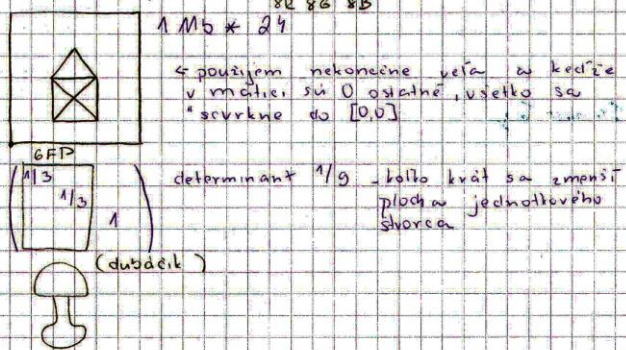 8R 8G 8B
1 Mb * 24
← použijem nekonečne veľa a keďže
v matici sú 0 ostatné, všetko sa
scvrkne do [0,0]
6FP
1/3
1/3
1
determinant 1/9 - koľko krát sa zmenší
plocha jednotkového
štvorca
(dubáčik)